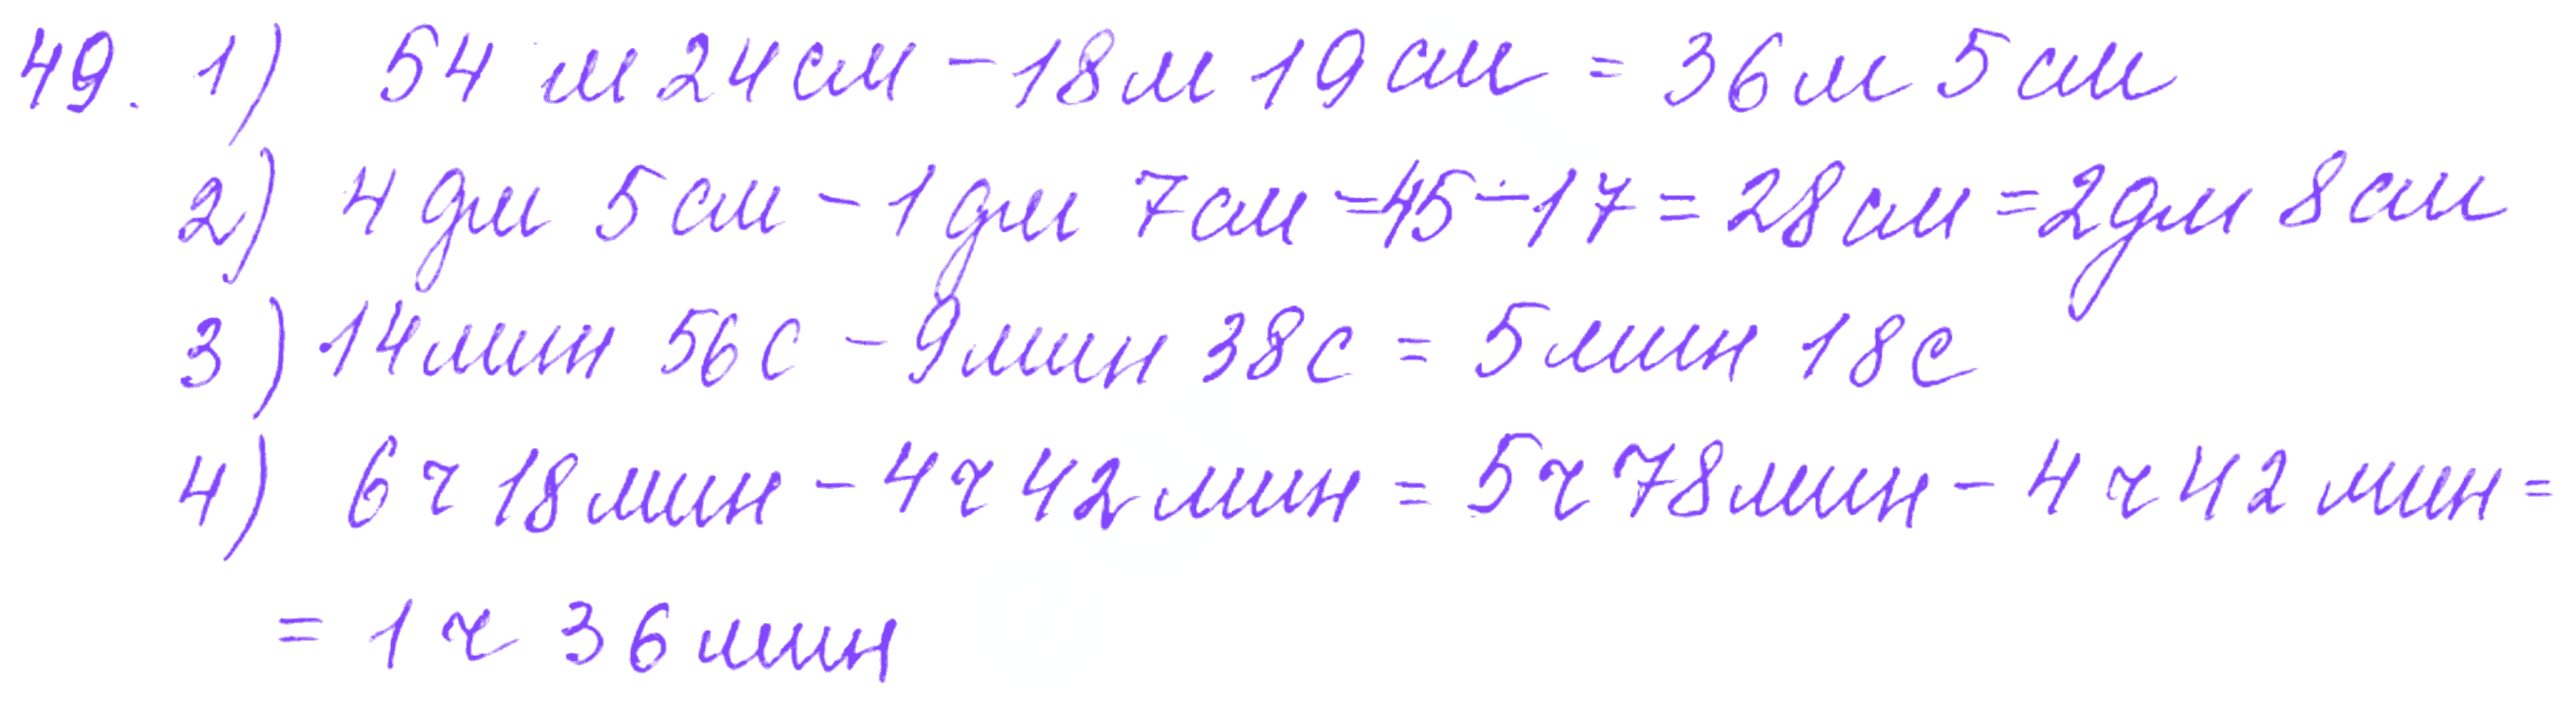 49. 1) 54 м 24 см - 18 м 19 см = 36 м 5 см
2) 4 дм 5 см - 1 дм 7 см = 45 - 17 = 28 см = 2 дм 8 см
3) 14 мин 56 с - 9 мин 38 с = 5 мин 18 с
4) 6 ч 18 мин - 4 ч 42 мин = 5 ч 78 мин - 4 ч 42 мин =
= 1 ч 36 мин